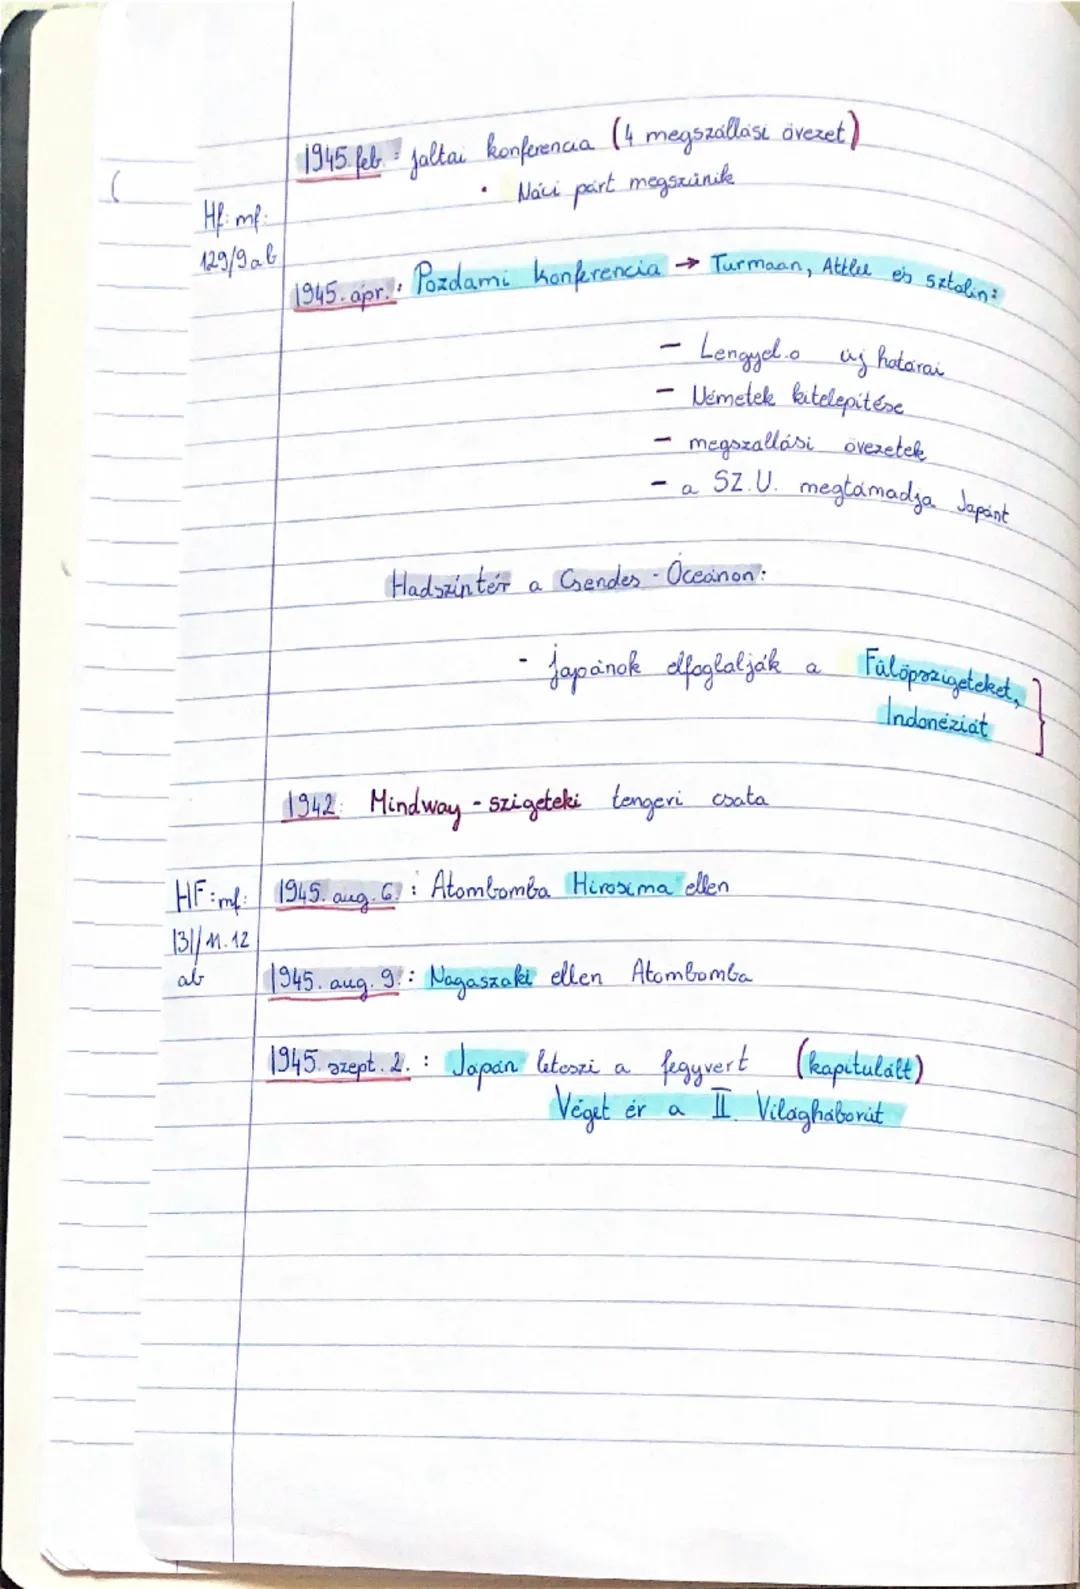 1945. feb. : jaltai konferencia (4 megszállási övezet)
• Náci párt megszűnik
Hf: mf:
129/9ab
1945. ápr. : Pozdami konferencia → Turmaan, Attlee és sztalin:
- Lengyel.o új határai
- Németek kitelepítése
- megszallási övezetek
- a SZ.U. megtámadja Japánt
Hadszíntér a Csendes-Óceánon:
- japánok elfoglalják a Fülöpszigeteket,
Indonéziát
1942: Mindway - szigeteki tengeri csata
HF: mf: 1945. aug. 6. : Atombomba Hirosima ellen
131/11.12
ab
1945. aug. 9. : Nagaszaki ellen Atombomba
1945. szept. 2. : Japán leteszi a fegyvert (kapitulált)
Véget ér a II. Világháborút